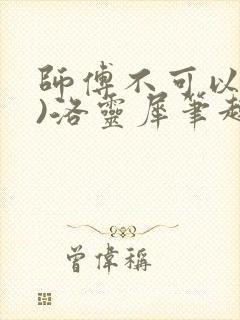 師傅不可以
)洛靈犀筆趣
曾偉稱